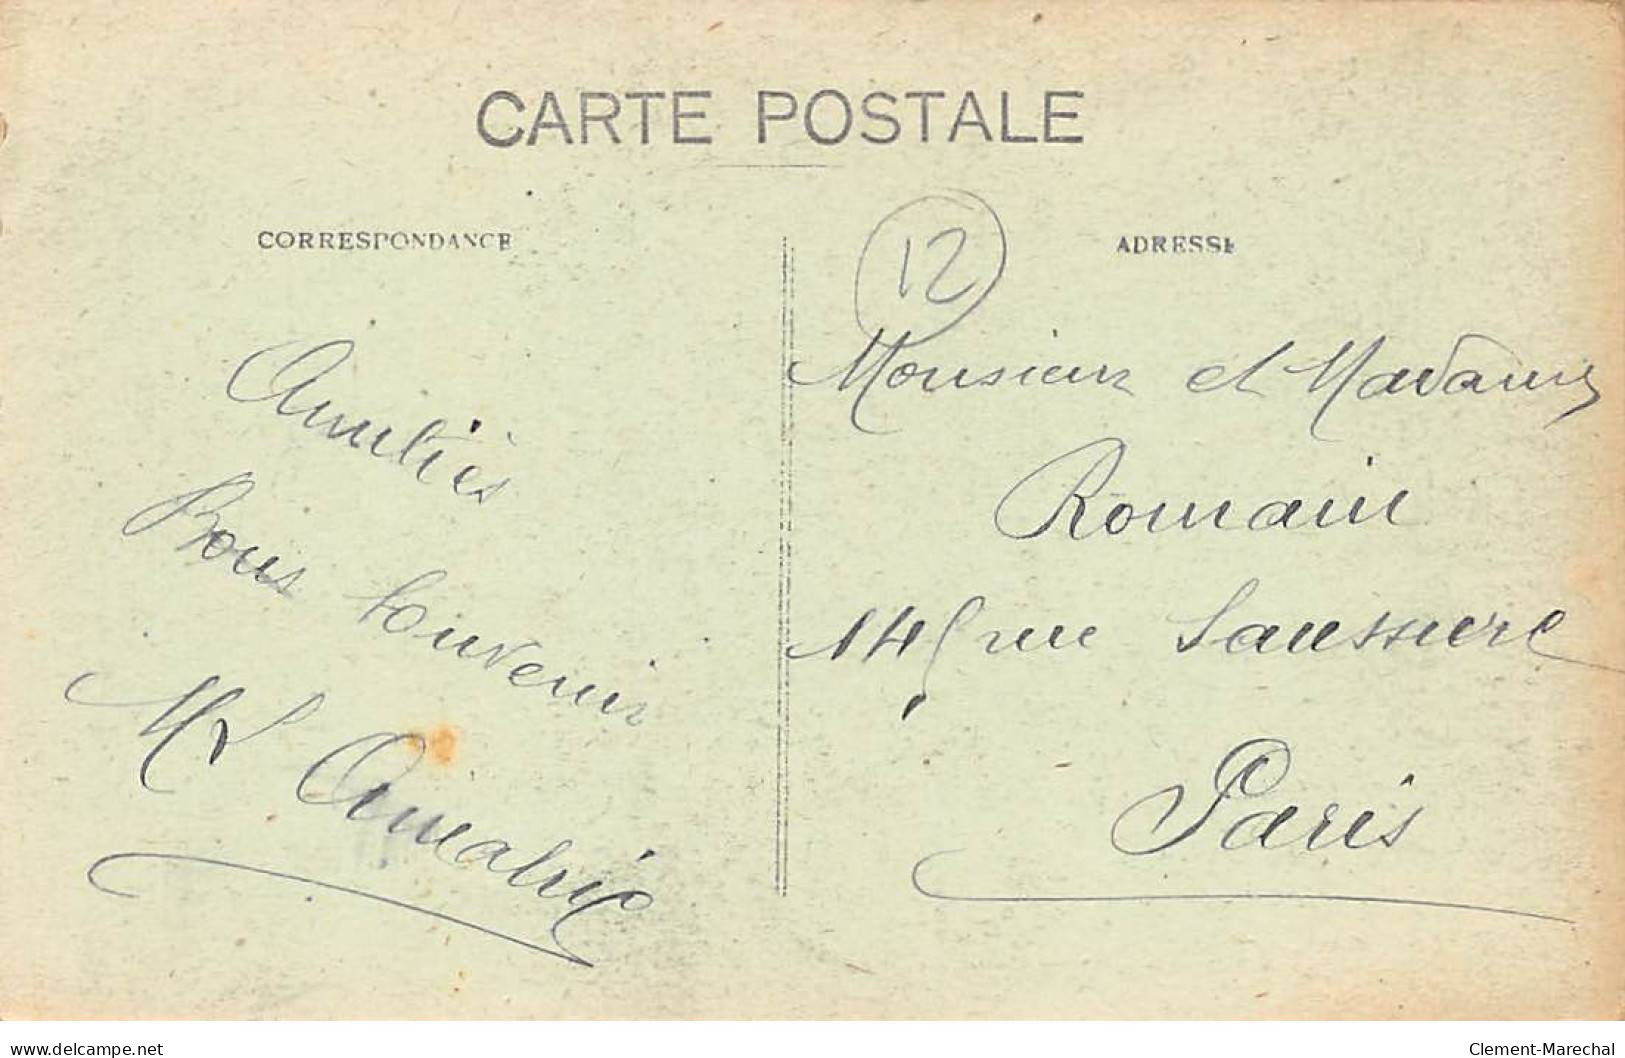 CARTE POSTALE
CORRESPONDANCE
ADRESSE
12
Amitiés
Bons Souvenir
Monsieur et Madame
Romain
145 rue Saussure
Paris
delcampe.net
Clement-Marechal